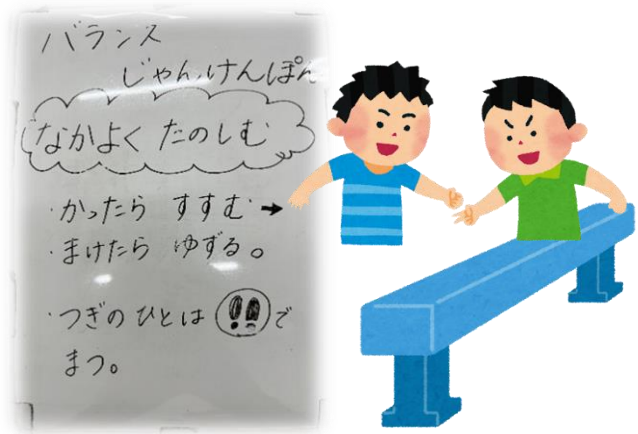 バランス
じゃんけんぽん
なかよく たのしむ
・かったら すすむ→
・まけたら ゆずる。
・つぎのひとは で
まつ。